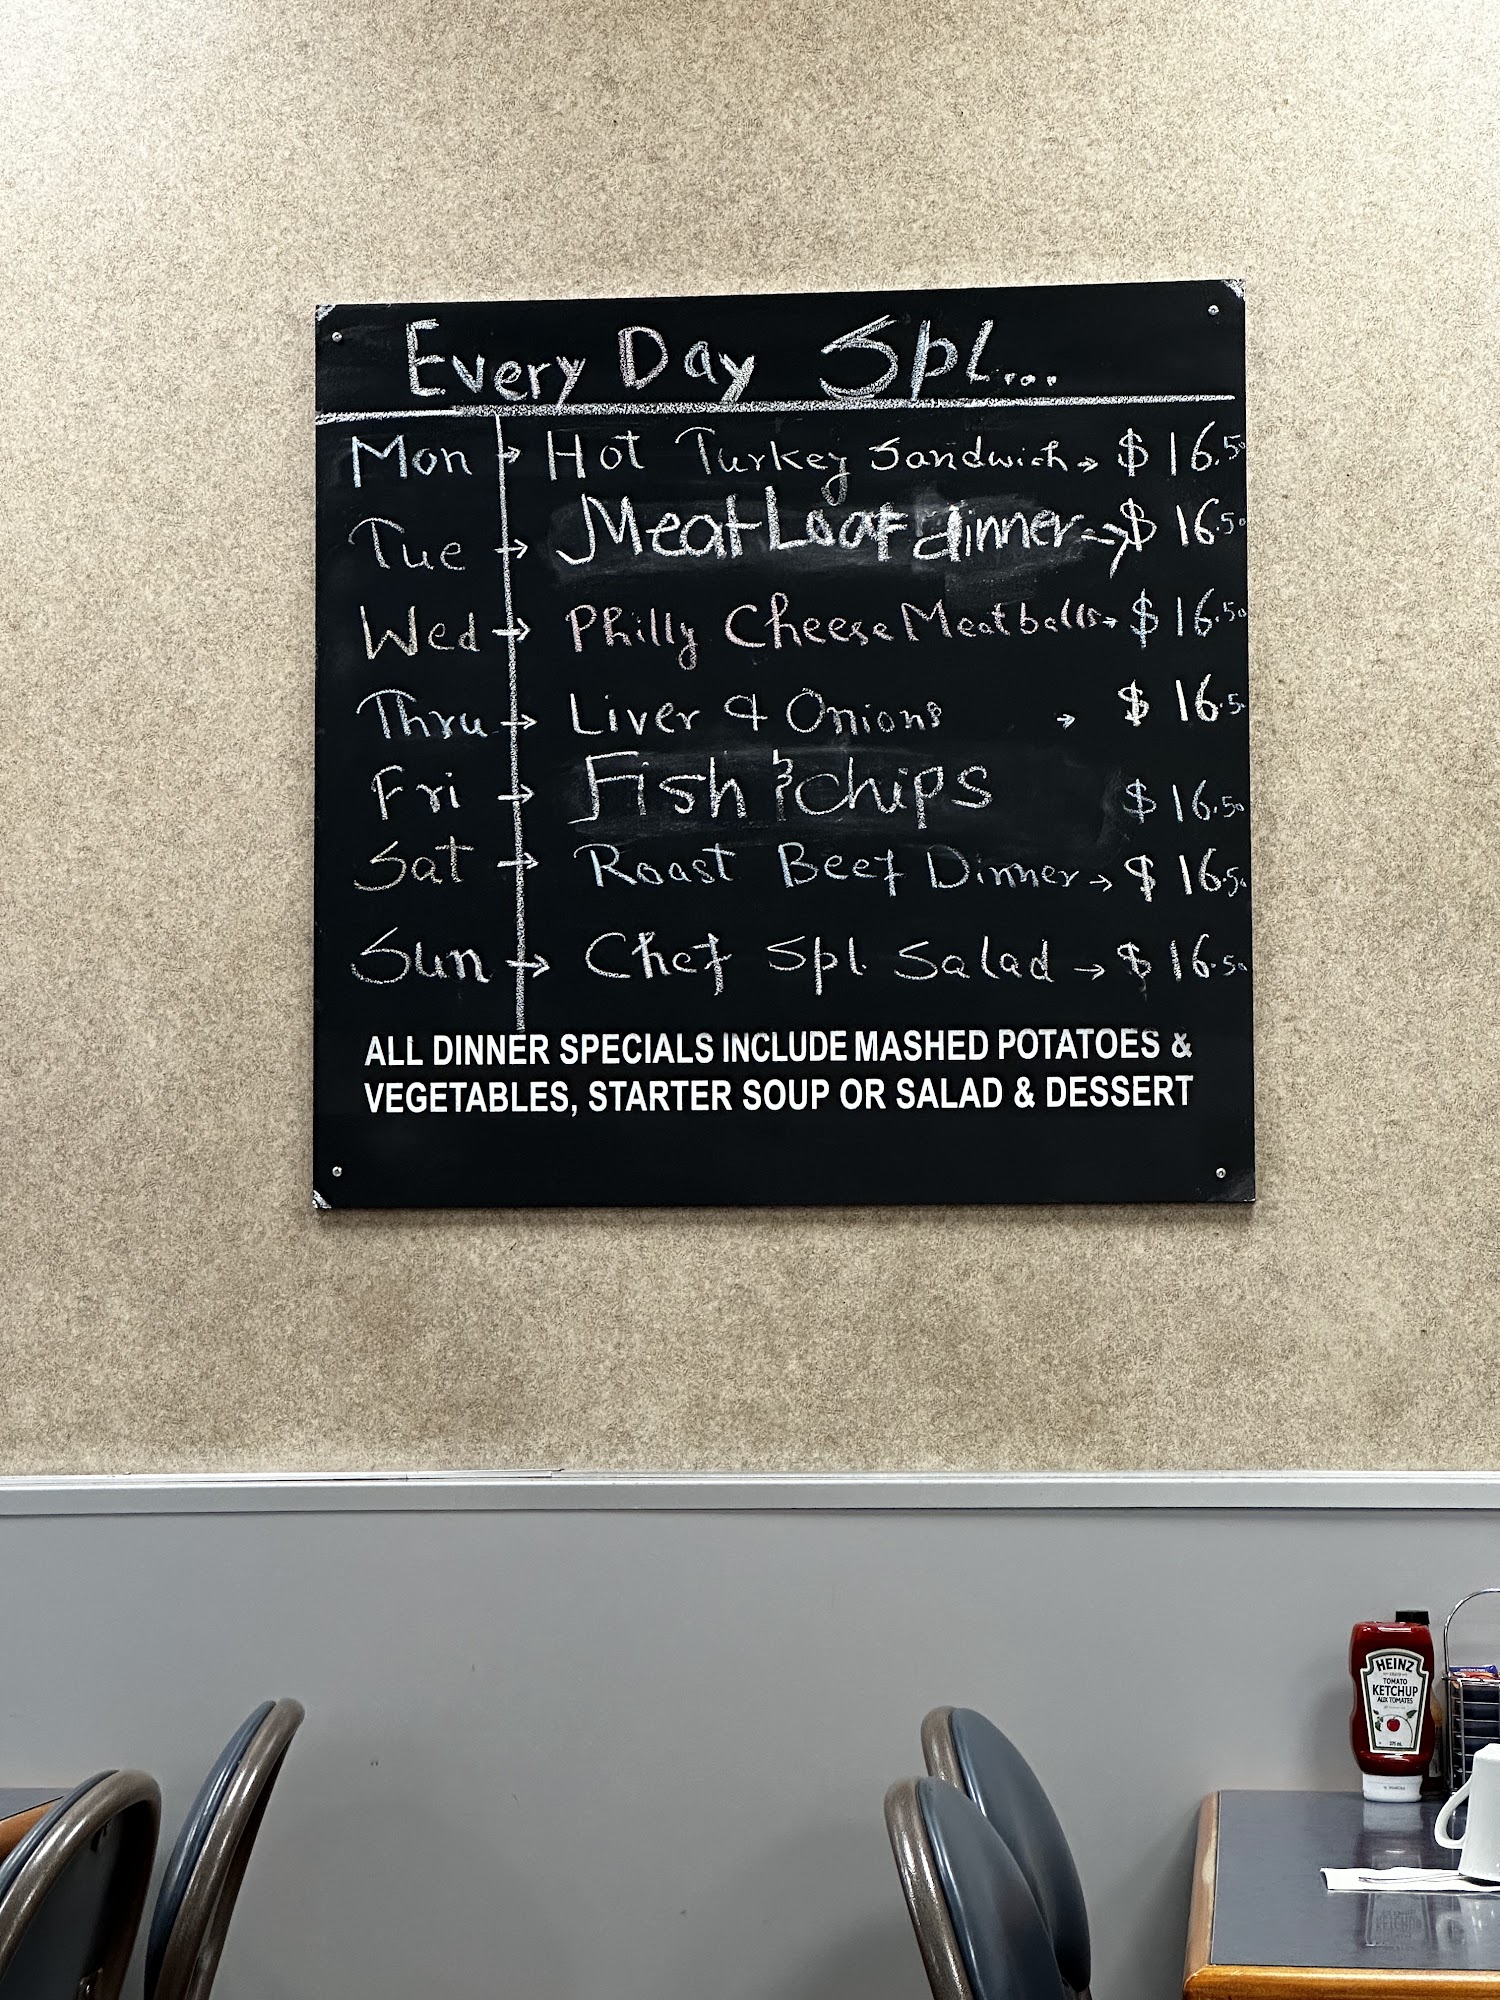 Every Day Spl...
Mon → Hot Turkey Sandwich → $16.50
Tue → Meat Loaf dinner → $16.50
Wed → Philly Cheese Meatballs → $16.50
Thru → Liver & Onions → $16.50
Fri → Fish & chips $16.50
Sat → Roast Beef Dinner → $16.50
Sun → Chef Spl. Salad → $16.50
ALL DINNER SPECIALS INCLUDE MASHED POTATOES &
VEGETABLES, STARTER SOUP OR SALAD & DESSERT
HEINZ
TOMATO
KETCHUP
AUX TOMATES